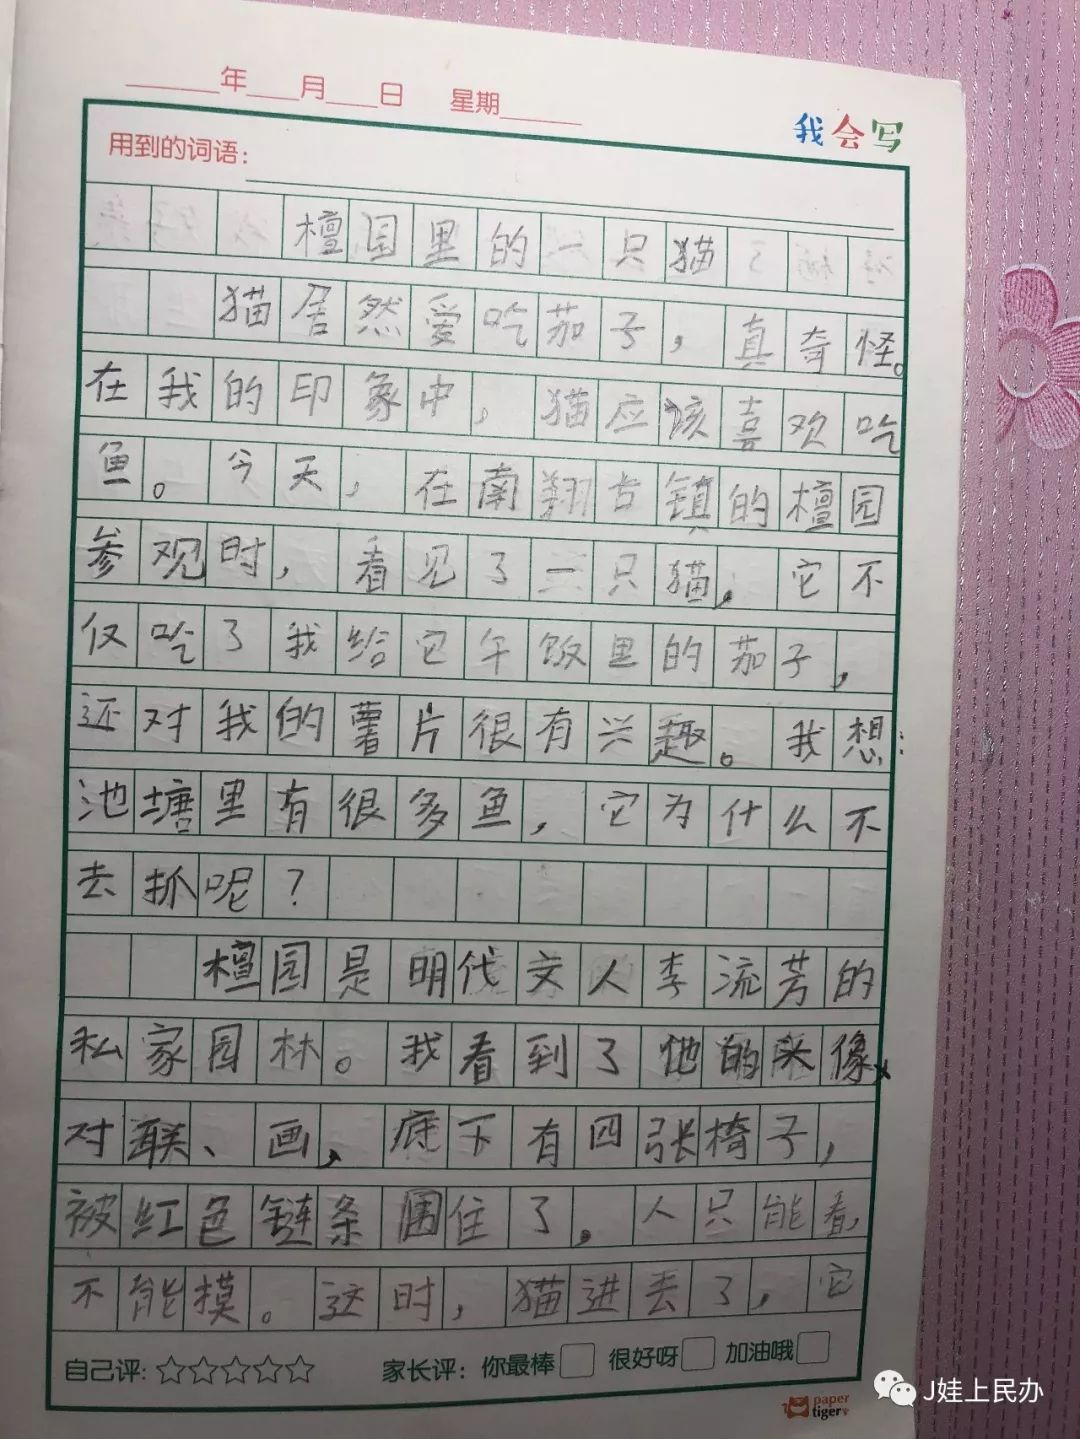 年 月 日 星期
我会写
用到的词语：
檀园里的一只猫
猫居然爱吃茄子，真奇怪。
在我的印象中，猫应该喜欢吃
鱼。今天，在南翔古镇的檀园
参观时，看见了一只猫，它不
仅吃了我给它午饭里的茄子，
还对我的薯片很有兴趣。我想：
池塘里有很多鱼，它为什么不
去抓呢？
檀园是明代文人李流芳的
私家园林。我看到了他的头像、
对联、画，底下有四张椅子，
被红色链条围住了。人只能看，
不能摸。这时，猫进去了，它
自己评：☆☆☆☆☆ 家长评：你最棒□ 很好呀□ 加油哦□
paper tiger
J娃上民办